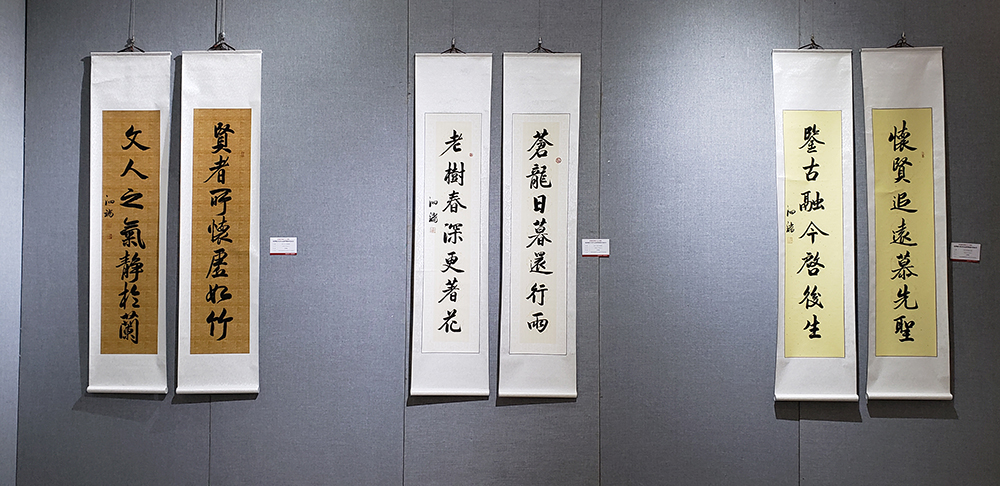 懷賢追遠慕先聖
鑒古融今啓後生
蒼龍日暮還行雨
老樹春深更著花
賢者所懷虛如竹
文人之氣靜於蘭